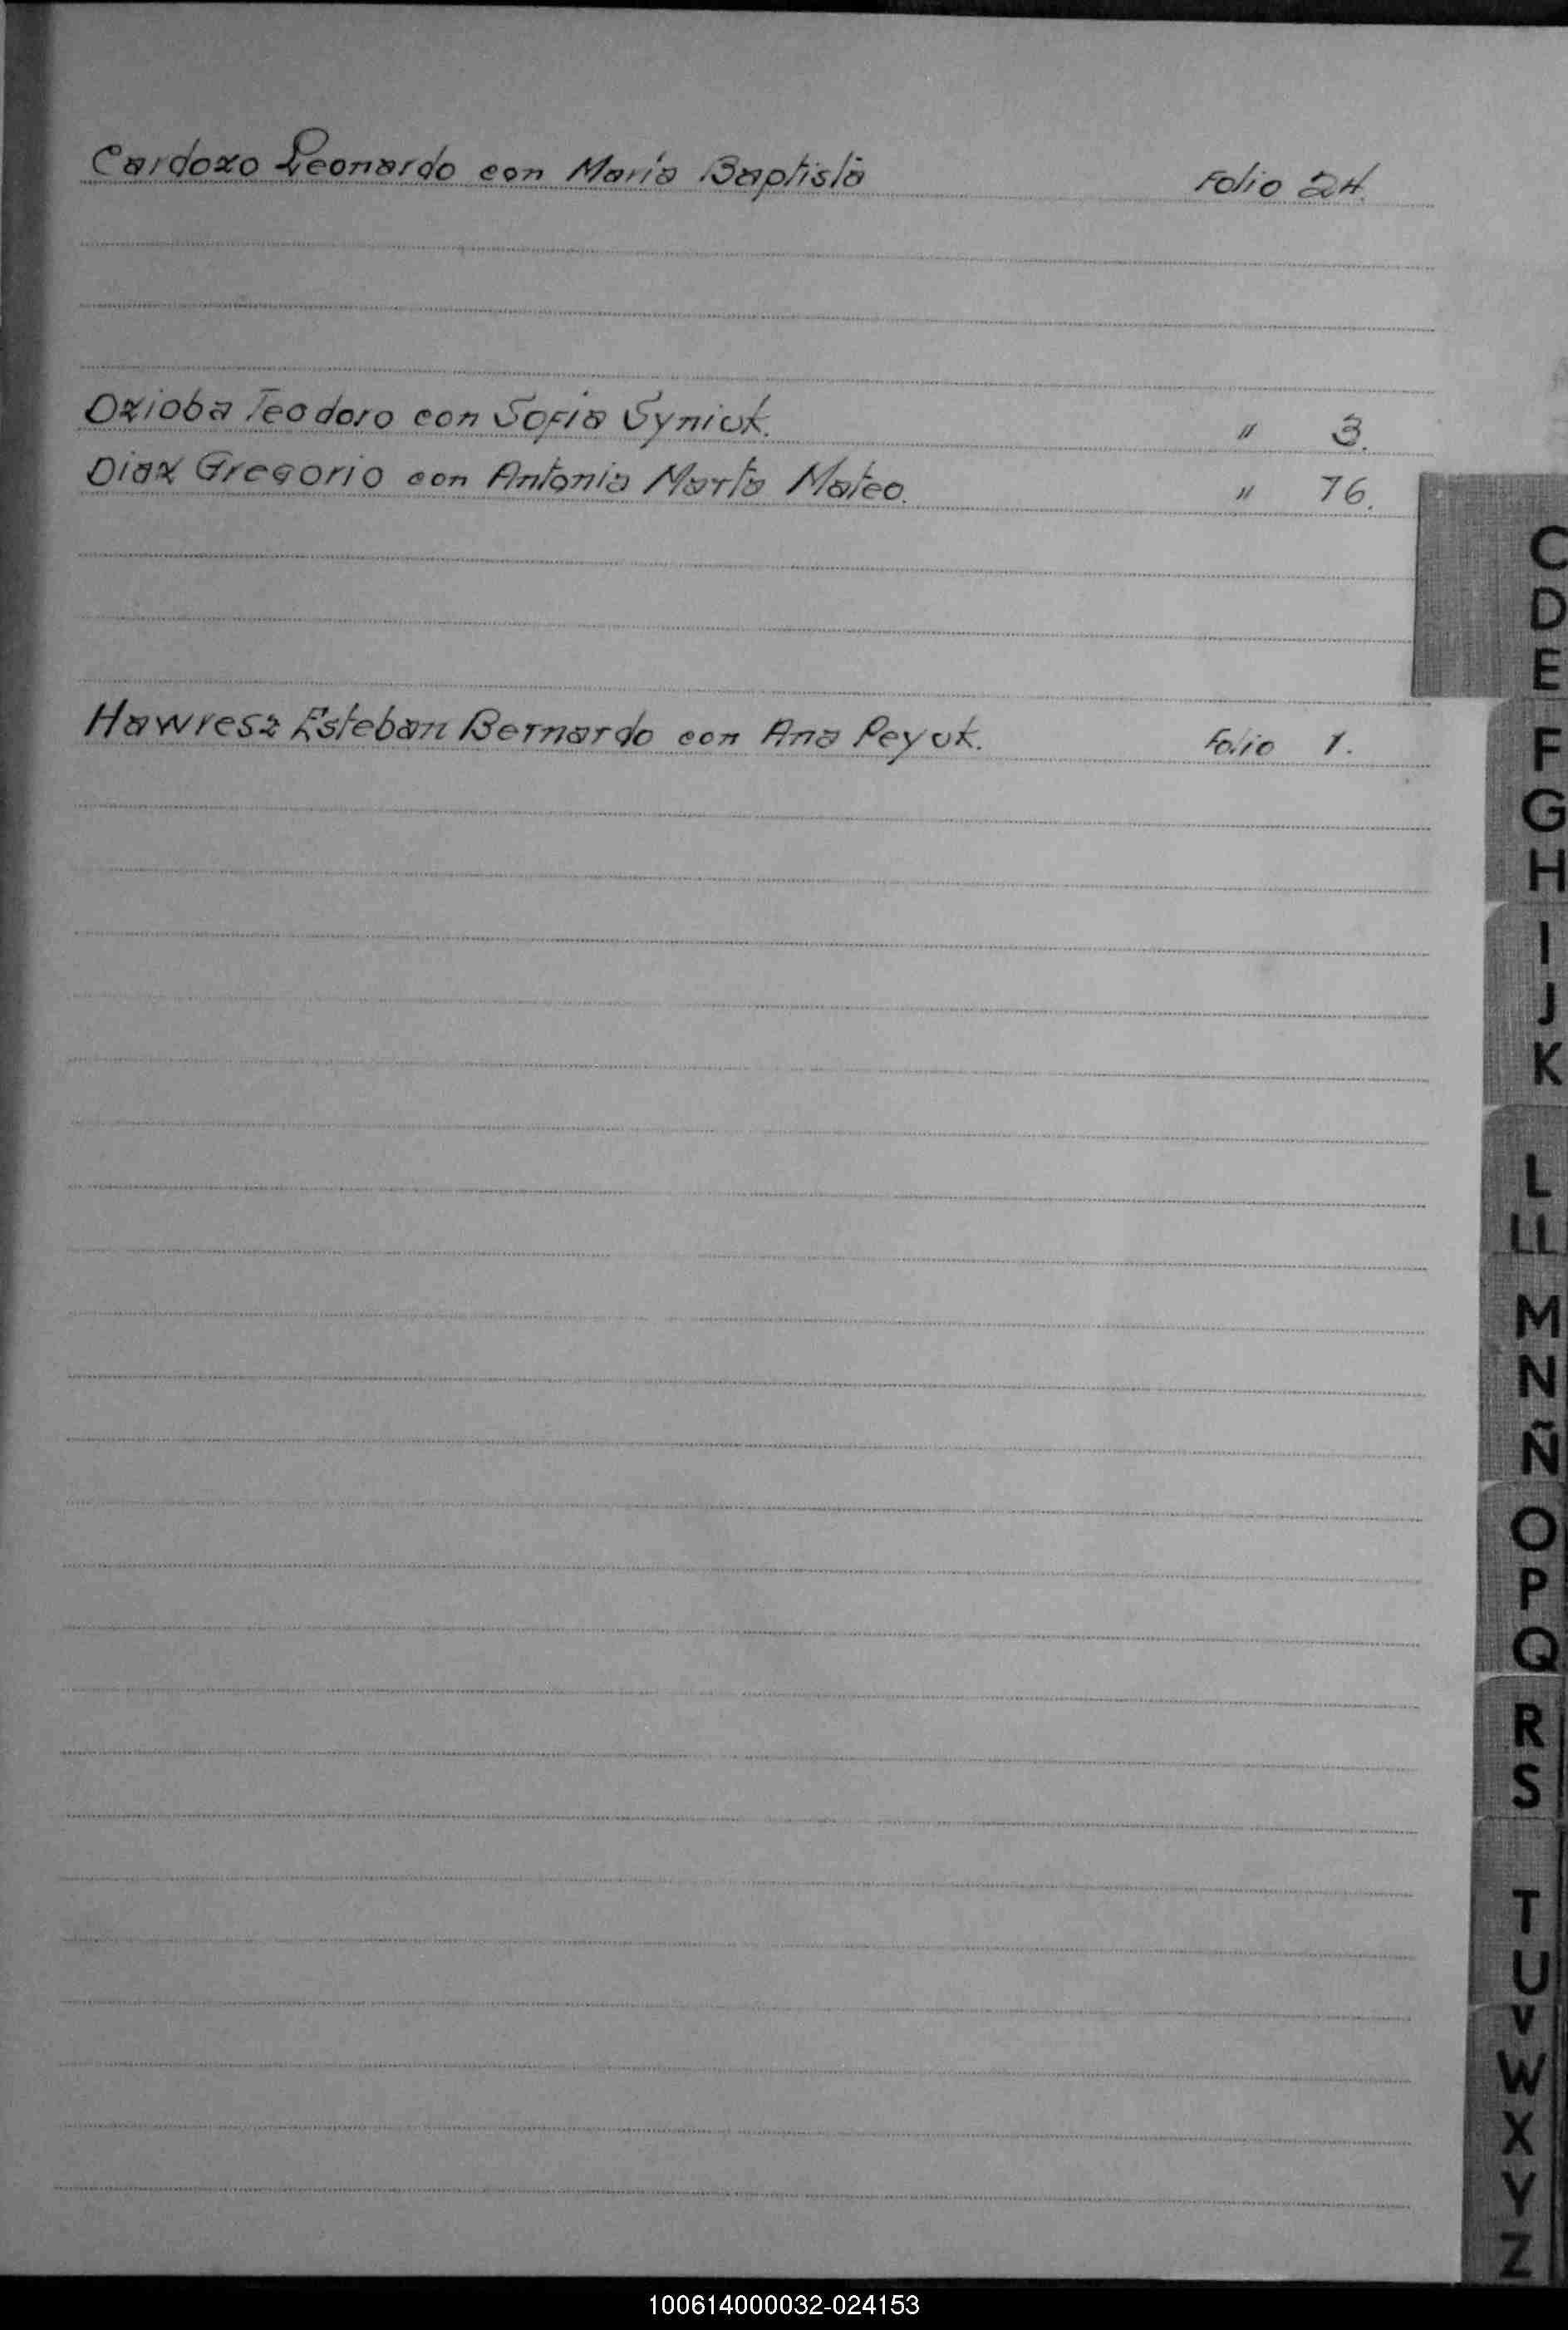 Cardozo Leonardo con María Baptista Folio 24.
Dzioba Teodoro con Sofia Syniuk. " 3.
Diaz Gregorio con Antonia Marta Mateo. " 76.
Hawresz Esteban Bernardo con Ana Peyuk. Folio 1.
C
D
E
F
G
H
I
J
K
L
LL
M
N
Ñ
O
P
Q
R
S
T
U
V
W
X
Y
Z
100614000032-024153